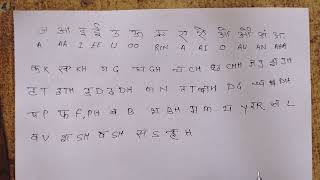 अ आ इ ई उ ऊ ऋ ए ऐ ओ औ अं अः
A AA I EE U OO RIN A AI O AU AN AHA
क K ख KH ग G घ GH च CH छ CHH ज J झ JH
ट T ठ TH ड D ढ DH ण N त T थ TH द D ध DH
प P फ F,PH ब B भ BH म M य Y र R ल L
व V श SH ष SH स S ह H